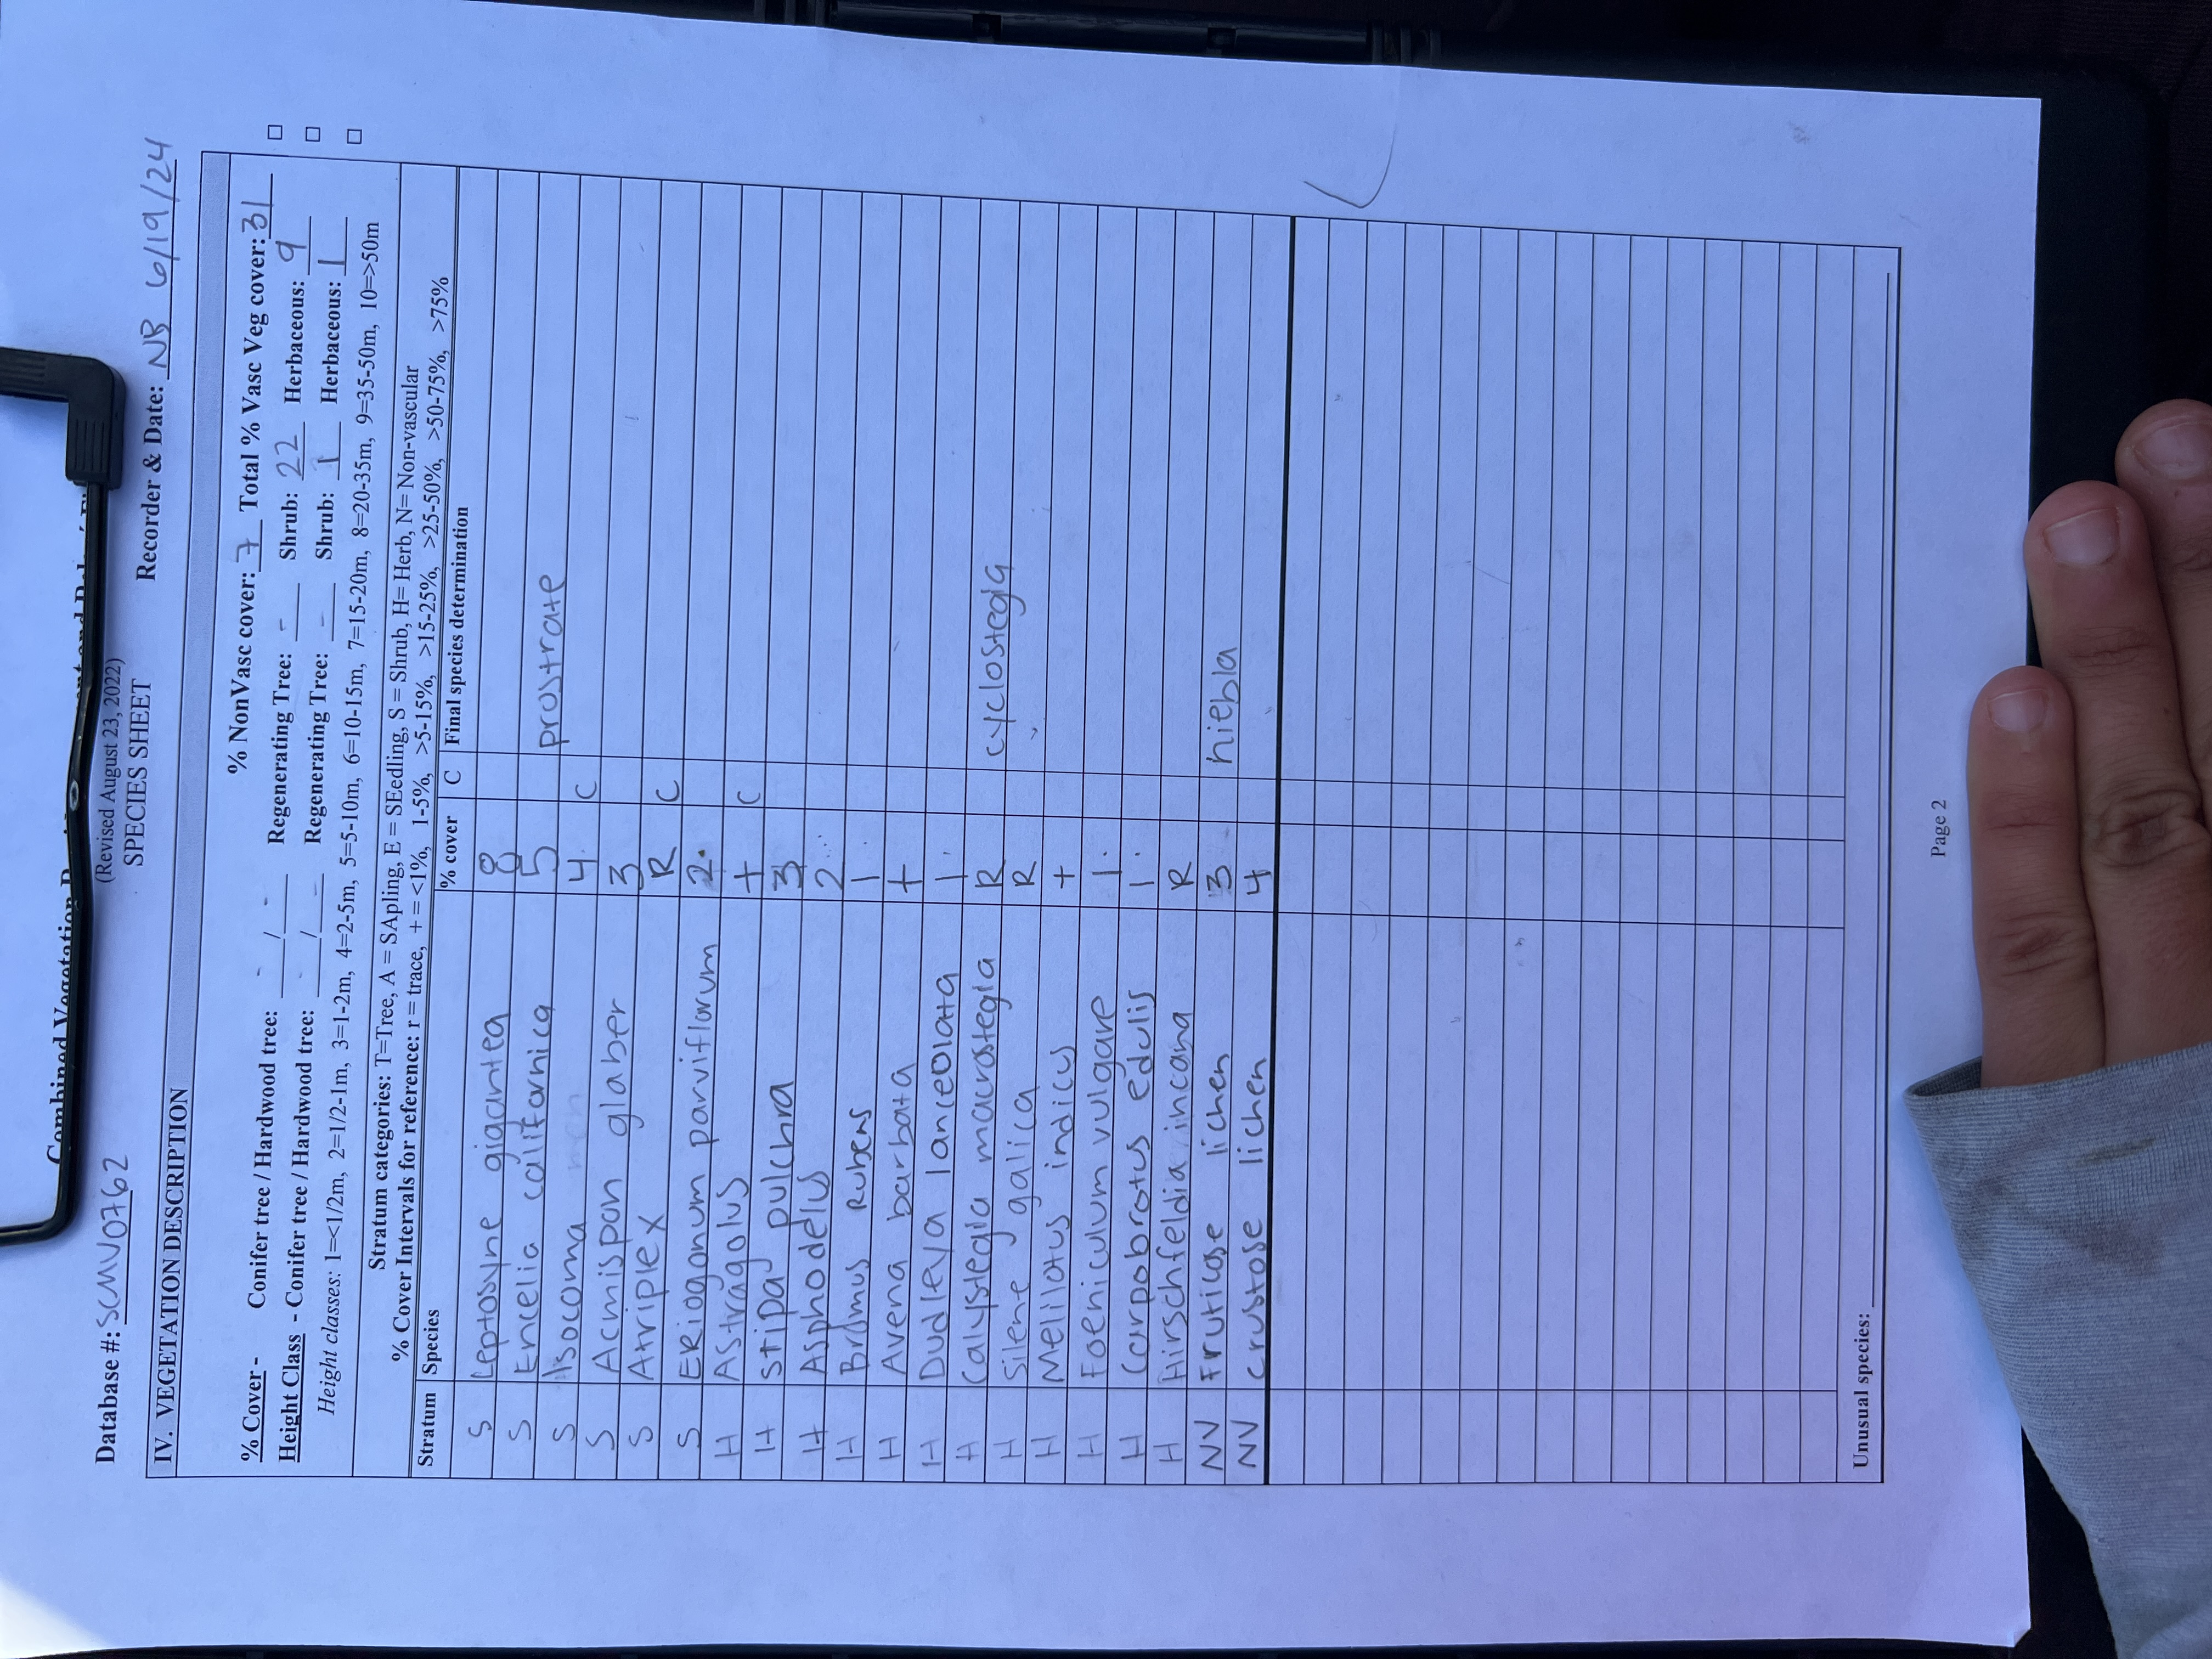 (Revised August 23, 2022)
SPECIES SHEET
Database #: SCMV0762 Recorder & Date: NB 6/19/24
IV. VEGETATION DESCRIPTION
% NonVasc cover: 7 Total % Vasc Veg cover: 31
% Cover - Conifer tree / Hardwood tree: - / - Regenerating Tree: - Shrub: 22 Herbaceous: 9
Height Class - Conifer tree / Hardwood tree: - / - Regenerating Tree: - Shrub: 1 Herbaceous: 1
Height classes: 1=<1/2m, 2=1/2-1m, 3=1-2m, 4=2-5m, 5=5-10m, 6=10-15m, 7=15-20m, 8=20-35m, 9=35-50m, 10=>50m
Stratum categories: T=Tree, A = SApling, E = SEedling, S = Shrub, H= Herb, N= Non-vascular
% Cover Intervals for reference: r = trace, + = <1%, 1-5%, >5-15%, >15-25%, >25-50%, >50-75%, >75%
Stratum Species % cover C Final species determination
S Leptosyne gigantea 8
S Encelia californica 5
S Isocoma 4 C prostrate
S Acmispon glaber 3
S Atriplex R C
S ERiogonum parviflorum 2
H Astragalus + C
H Stipa pulchra 3
H Asphodelus 2
H Bromus Rubens 1
H Avena barbata +
H Dudleya lanceolata 1
H Calystegia macrostegia R cyclostegia
H Silene galica R
H Melilotus indicus +
H Foeniculum vulgare 1
H Carpobrotus edulis 1
H Hirschfeldia incana R
NV Fruticose lichen 3 niebla
NV crustose lichen 4
Unusual species:
Page 2